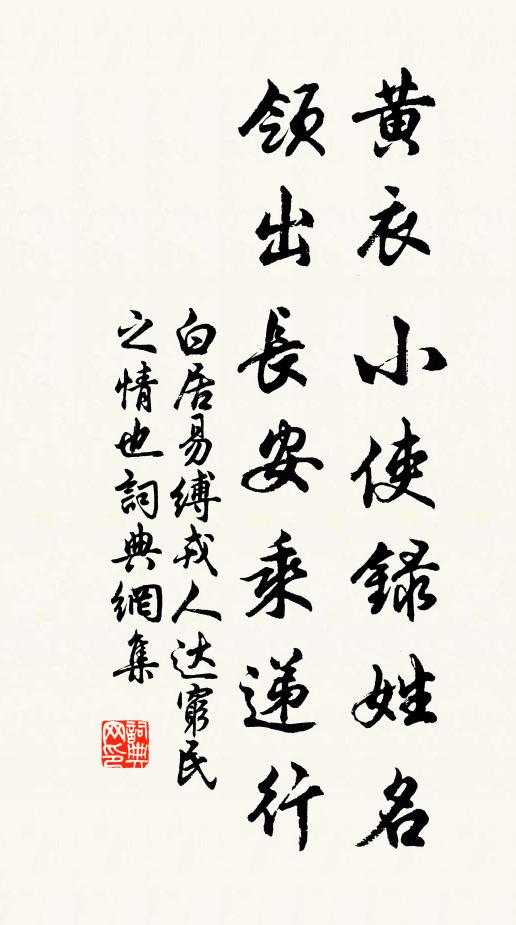 黄衣小使録姓名
領出長安乘递行
白居易縛戎人达窮民
之情也詞典網集
詞典
网印